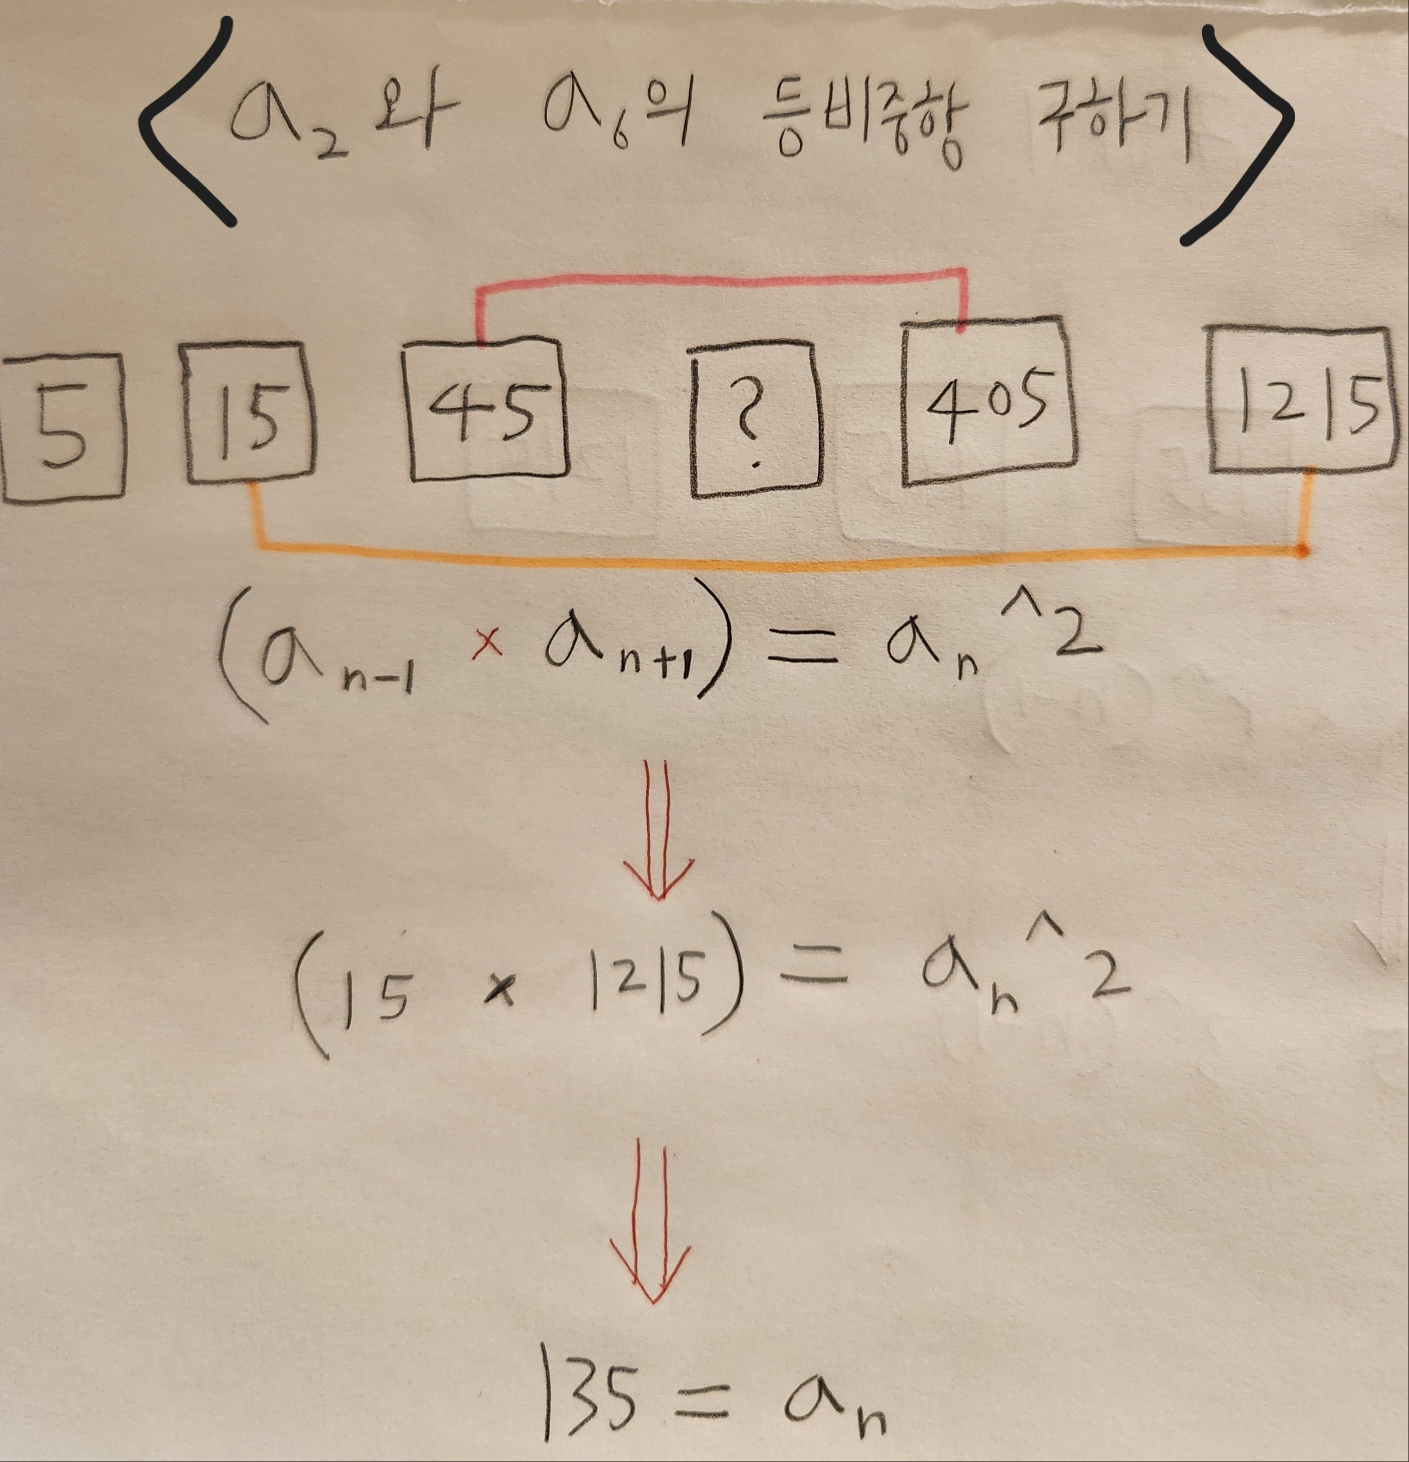 <a₂와 a₆의 등비중항 구하기>
5 15 45 ? 405 1215
(aₙ₋₁ × aₙ₊₁) = aₙ^2
(15 × 1215) = aₙ^2
135 = aₙ